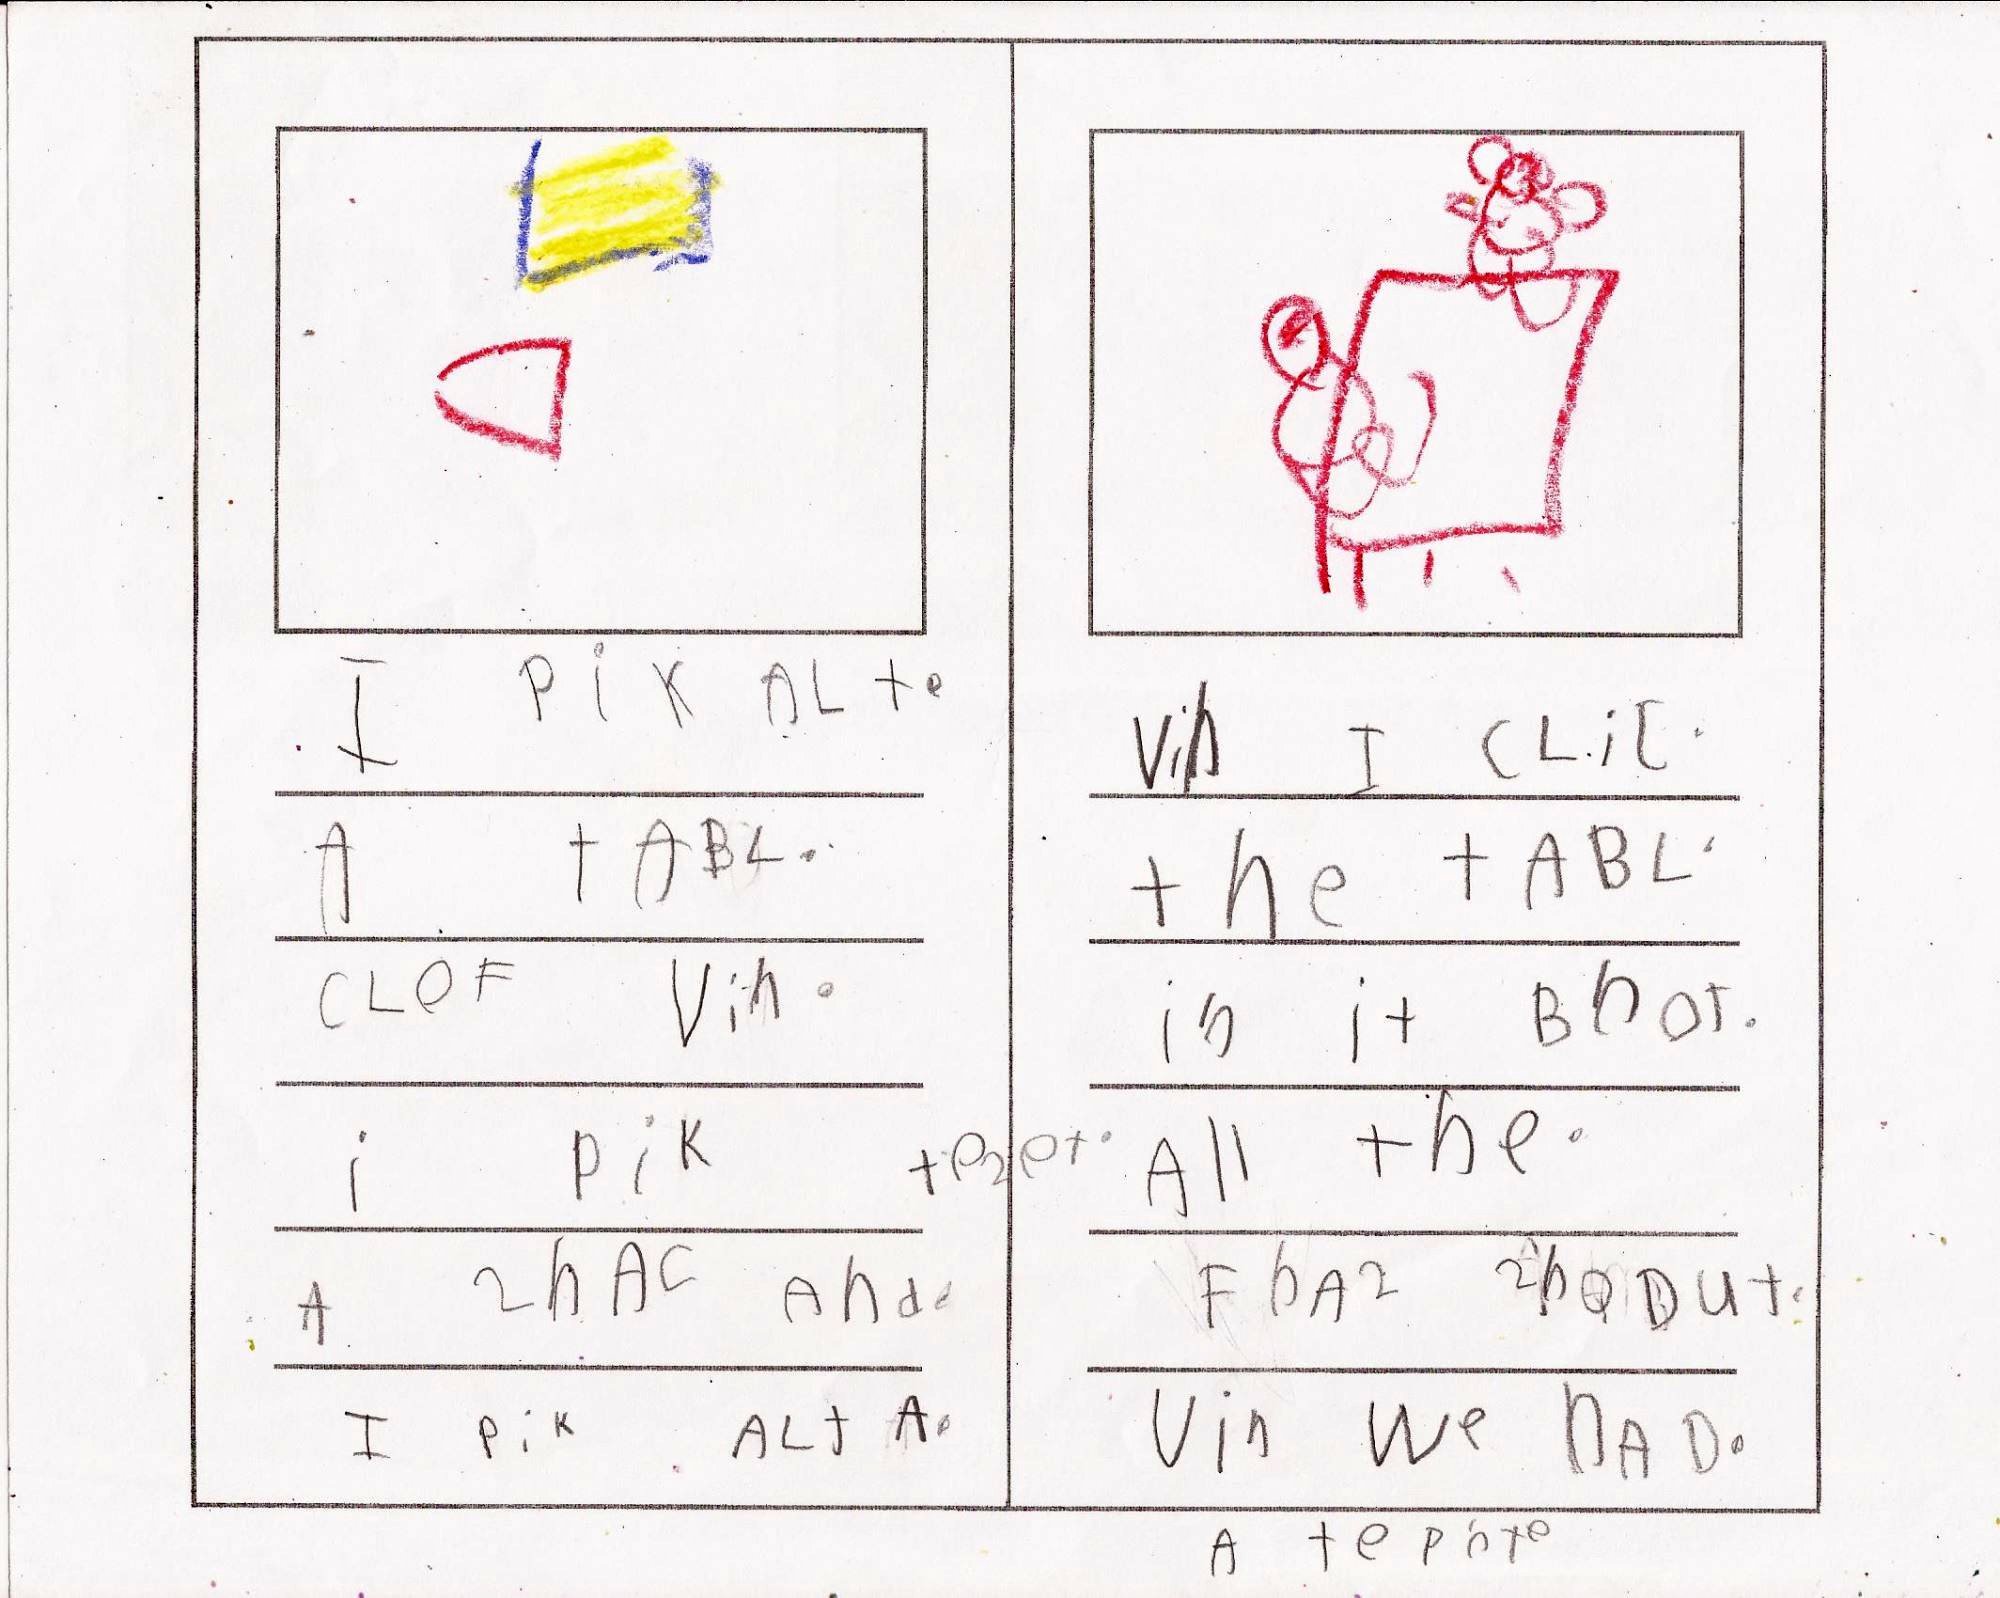 I PiK ALte
A tABL.
CLOF Vin.
i PiK te2et.
A 2hAC And.
I PiK ALt A.
Vin I CLiC.
the tABL.
in it BhOT.
All the.
FhA2 2hODUt.
Vin We hAD.
A tePhte